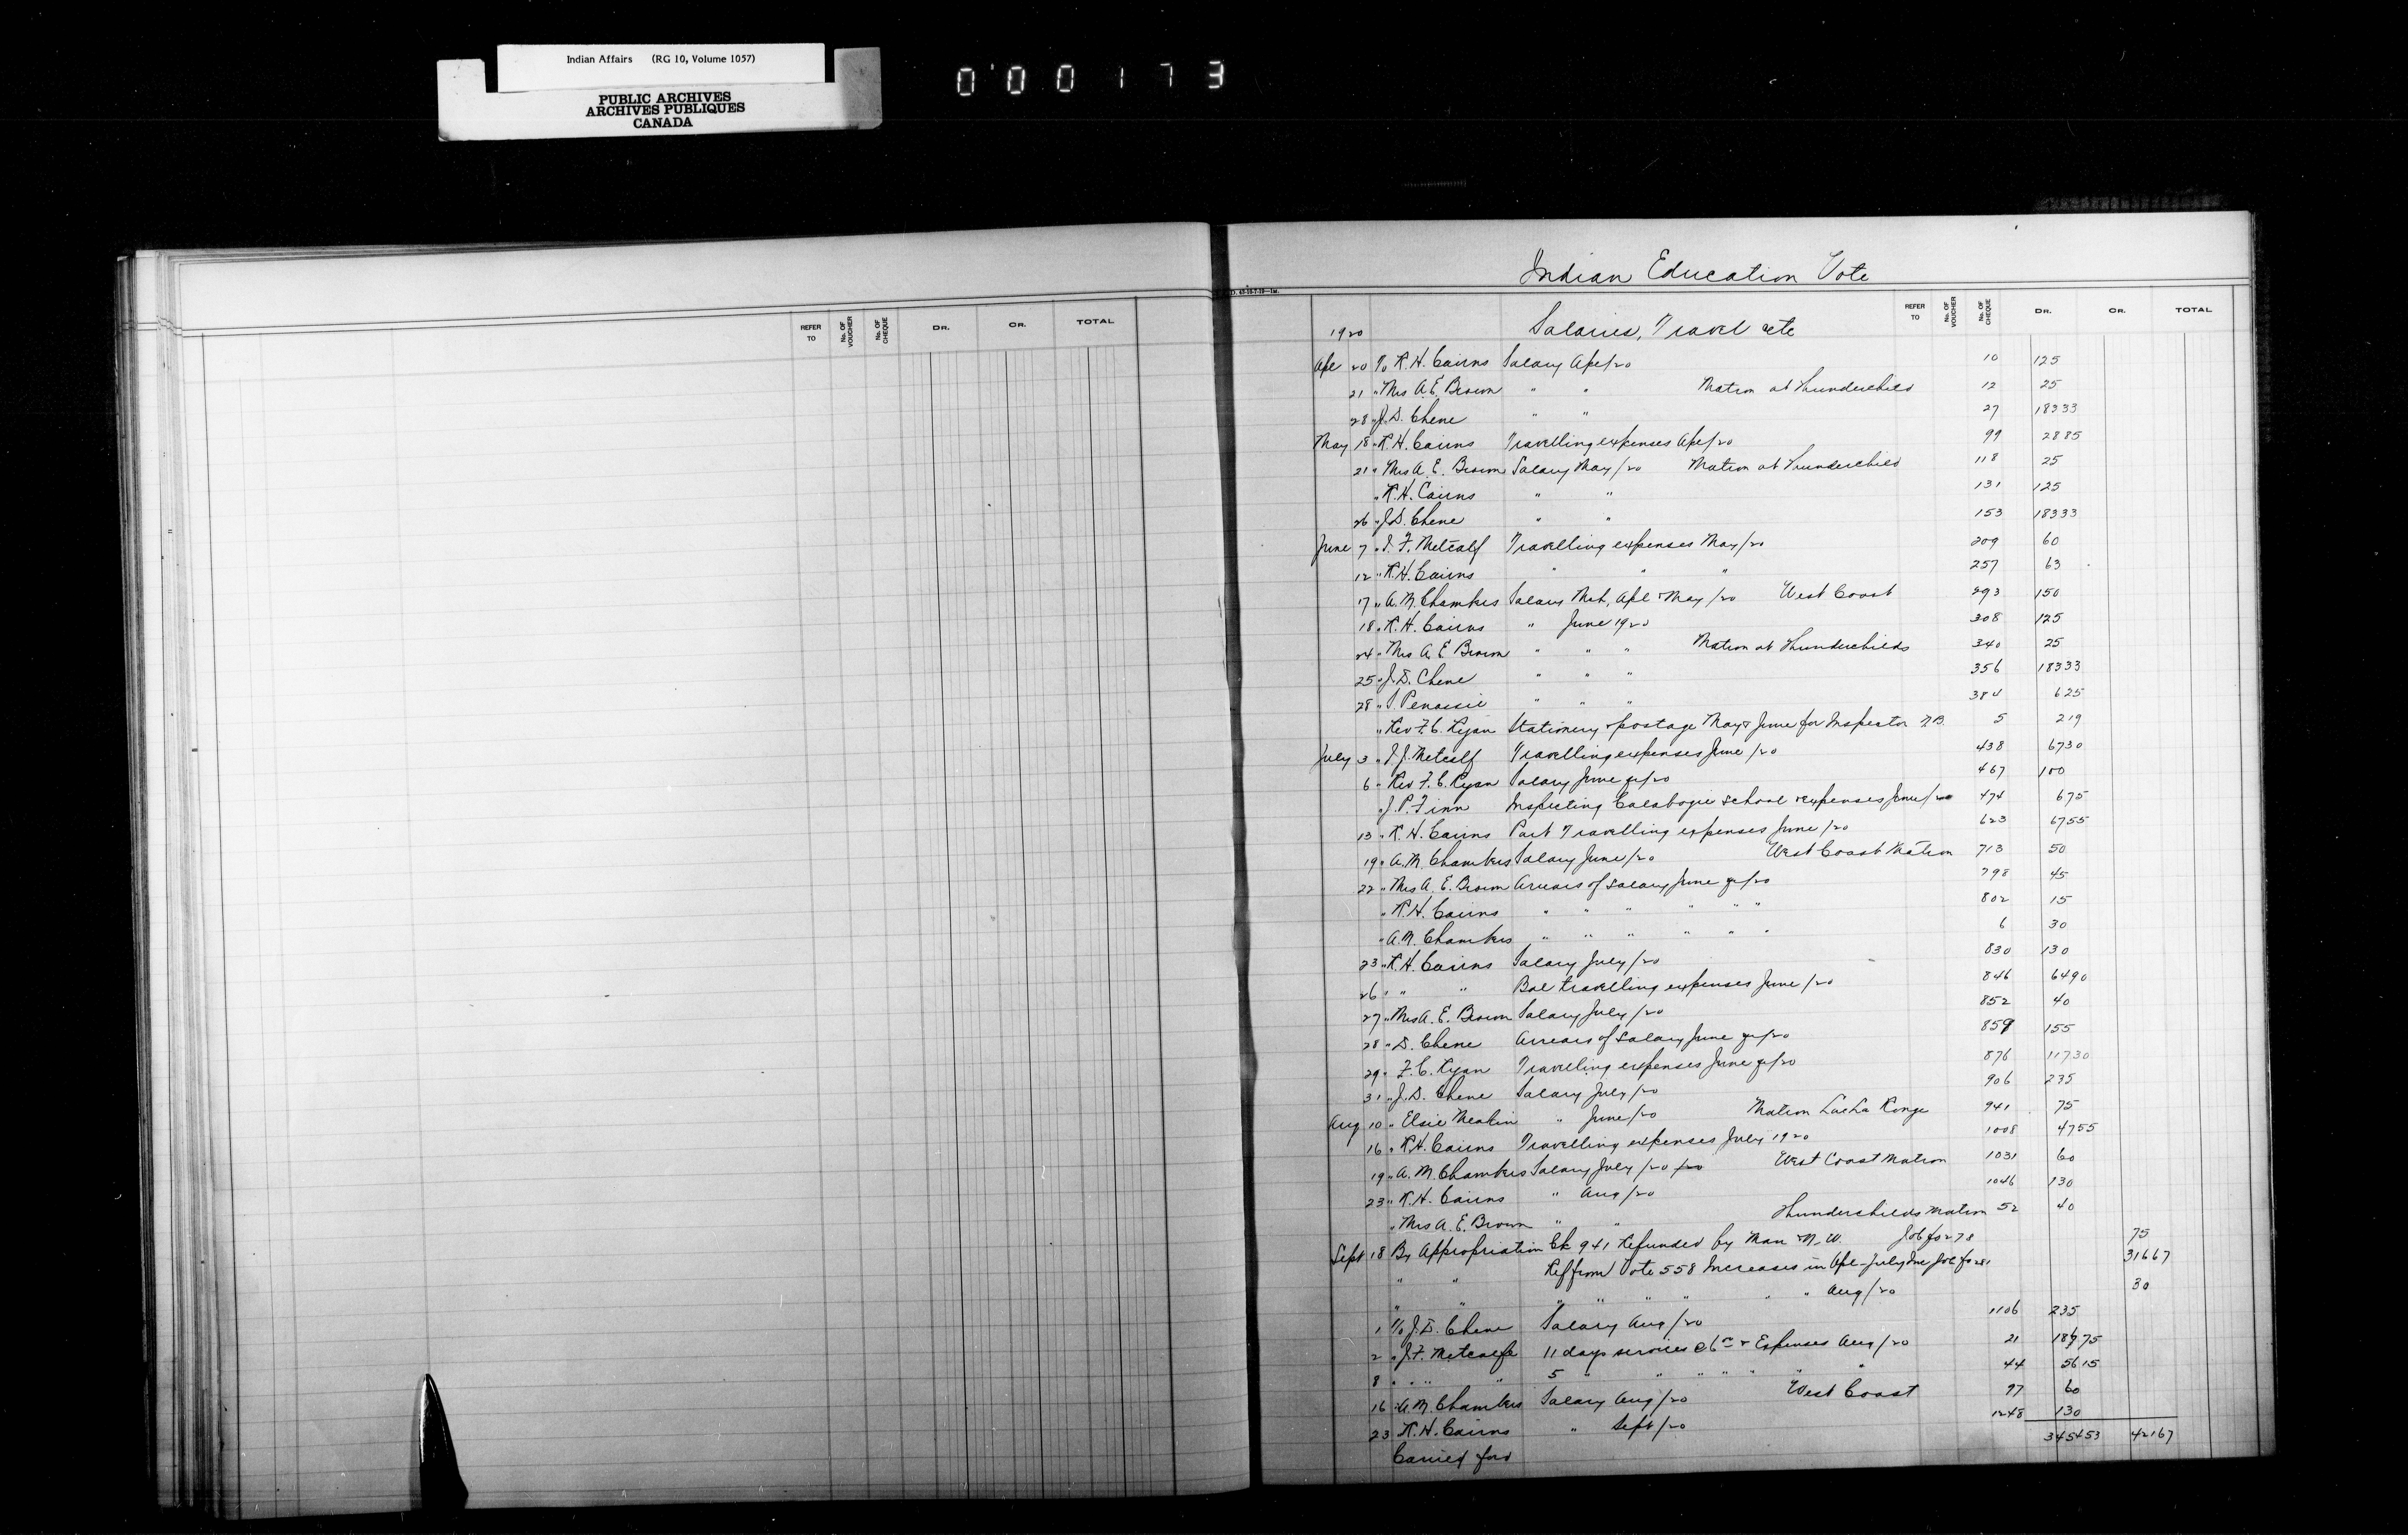 Indian Affairs (RG 10, Volume 1057)
PUBLIC ARCHIVES
ARCHIVES PUBLIQUES
CANADA
000173
REFER TO No. OF VOUCHER No. OF CHEQUE DR. CR. TOTAL
Indian Education Vote
REFER TO No. OF VOUCHER No. OF CHEQUE DR. CR. TOTAL
1920 Salaries, Travel etc
Apl 20 To R.H. Cairns Salary Apl/20 10 125
21 " Mrs A.E. Brown " " Matron at Thunderchild 12 25
28 " J.D. Chene " " 27 183 33
May 18 " R.H. Cairns Travelling expenses Apl/20 99 28 85
21 " Mrs A.E. Brown Salary May/20 Matron at Thunderchild 118 25
" R.H. Cairns " " 131 125
26 " J.D. Chene " " 153 183 33
June 7 " J.F. Metcalf Travelling expenses May/20 209 60
12 " R.H. Cairns " " " 257 63
17 " A.M. Chambers Salary Mch, Apl & May/20 West Coast 293 150
18 " R.H. Cairns " June 1920 308 125
24 " Mrs A.E. Brown " " " Matron at Thunderchilds 340 25
25 " J.D. Chene " " " 356 183 33
28 " " " " 384 6 25
" Rev F.C. Ryan Stationery & postage May & June for Inspector N.B. 5 2 19
July 3 " J.J. Metcalf Travelling expenses June/20 438 67 30
6 " Rev F.C. Ryan Salary June qr/20 467 100
" J.P. Finn Inspecting Calabogie School & expenses June/20 474 6 75
13 " R.H. Cairns Part Travelling expenses June/20 623 67 55
19 " A.M. Chambers Salary June/20 West Coast Matron 713 50
22 " Mrs A.E. Brown Arrears of Salary June qr/20 798 45
" R.H. Cairns " " " " " " 802 15
" A.M. Chambers " " " " " " 6 30
23 " R.H. Cairns Salary July/20 830 130
26 " " " Bal travelling expenses June/20 846 64 90
27 " Mrs A.E. Brown Salary July/20 852 40
28 " D. Chene Arrears of Salary June qr/20 859 155
29 " F.C. Ryan Travelling expenses June qr/20 876 117 30
31 " J.D. Chene Salary July/20 906 235
Aug 10 " Elsie Meakin " June/20 Matron Lac La Ronge 941 75
16 " R.H. Cairns Travelling expenses July 1920 1008 47 55
19 " A.M. Chambers Salary July/20 /20 West Coast Matron 1031 60
23 " R.H. Cairns " Aug/20 1046 130
" Mrs A.E. Brown " " Thunderchilds Matron 52 40
Sept 18 By Appropriation Ck 941 Refunded by Man & N.W. Job fo 278 75
" " Ref from Vote 558 Increases in Apl-July Inc Job fo 281 316 67
" " " " " " " " Aug/20 30
1 To J.D. Chene Salary Aug/20 1106 235
2 " J.F. Metcalfe 11 days services @ 6 & Expenses Aug/20 21 75
8 " " " 5 " " " " " " 44 56 15
16 " A.M. Chambers Salary Aug/20 West Coast 97 60
23 R.H. Cairns " Sept/20 1248 130
Carried ford 3454 53 421 67